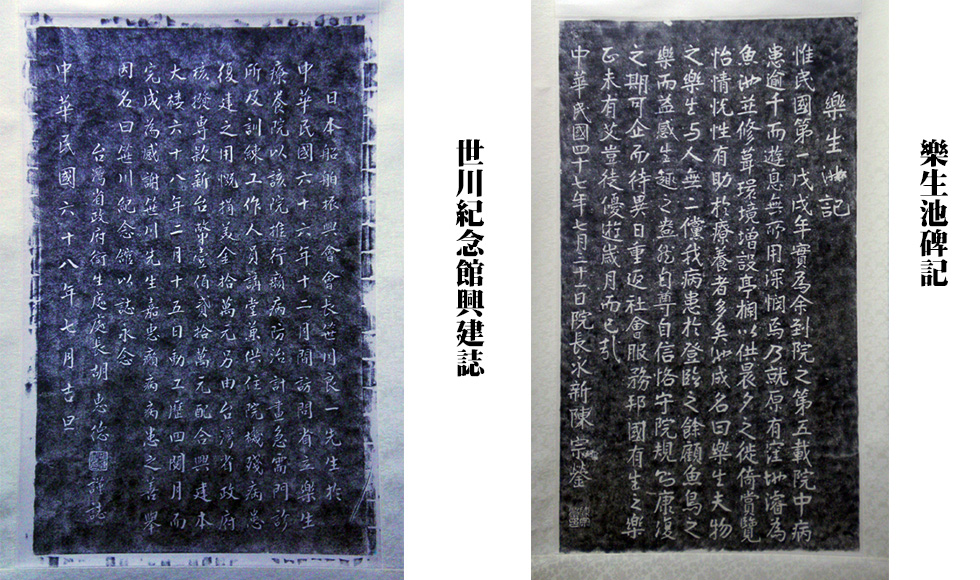 樂生池碑記
樂生池記
惟民國第一戊戌年實為余到院之第五載院中病
患逾千而遊息無所用深憫焉乃就原有窪地濬為
魚池並修葺環境增設亭榭以供晨夕之徙倚賞覽
怡情悦性有助於療養者多矣池成名曰樂生夫物
之樂生与人無二儻我病患於登臨之餘顧魚鳥之
樂而益感生趣之盎然自尊自信恪守院規則康復
之期可企而待異日重返社會服務邦國有生之樂
正未有艾豈徒優遊歲月而已哉
中華民國四十七年七月三十一日院長永新陳宗鎣
世川紀念館興建誌
日本船舶振興會會長笹川良一先生於
中華民國六十六年十二月間訪問省立樂生
療養院以該院推行癩病防治計畫急需門診
所及訓練工作人員講堂兼供住院機殘病患
復建之用慨捐美金拾萬元另由台灣省政府
核撥專款新台幣壹佰貳拾萬元配合興建本
大樓六十八年二月十五日動工歷四閱月而
完成為感謝笹川先生嘉惠癩病病患之善舉
因名曰笹川紀念館以誌永念
台灣省政府衛生處處長胡惠德謹誌
中華民國六十八年七月吉旦